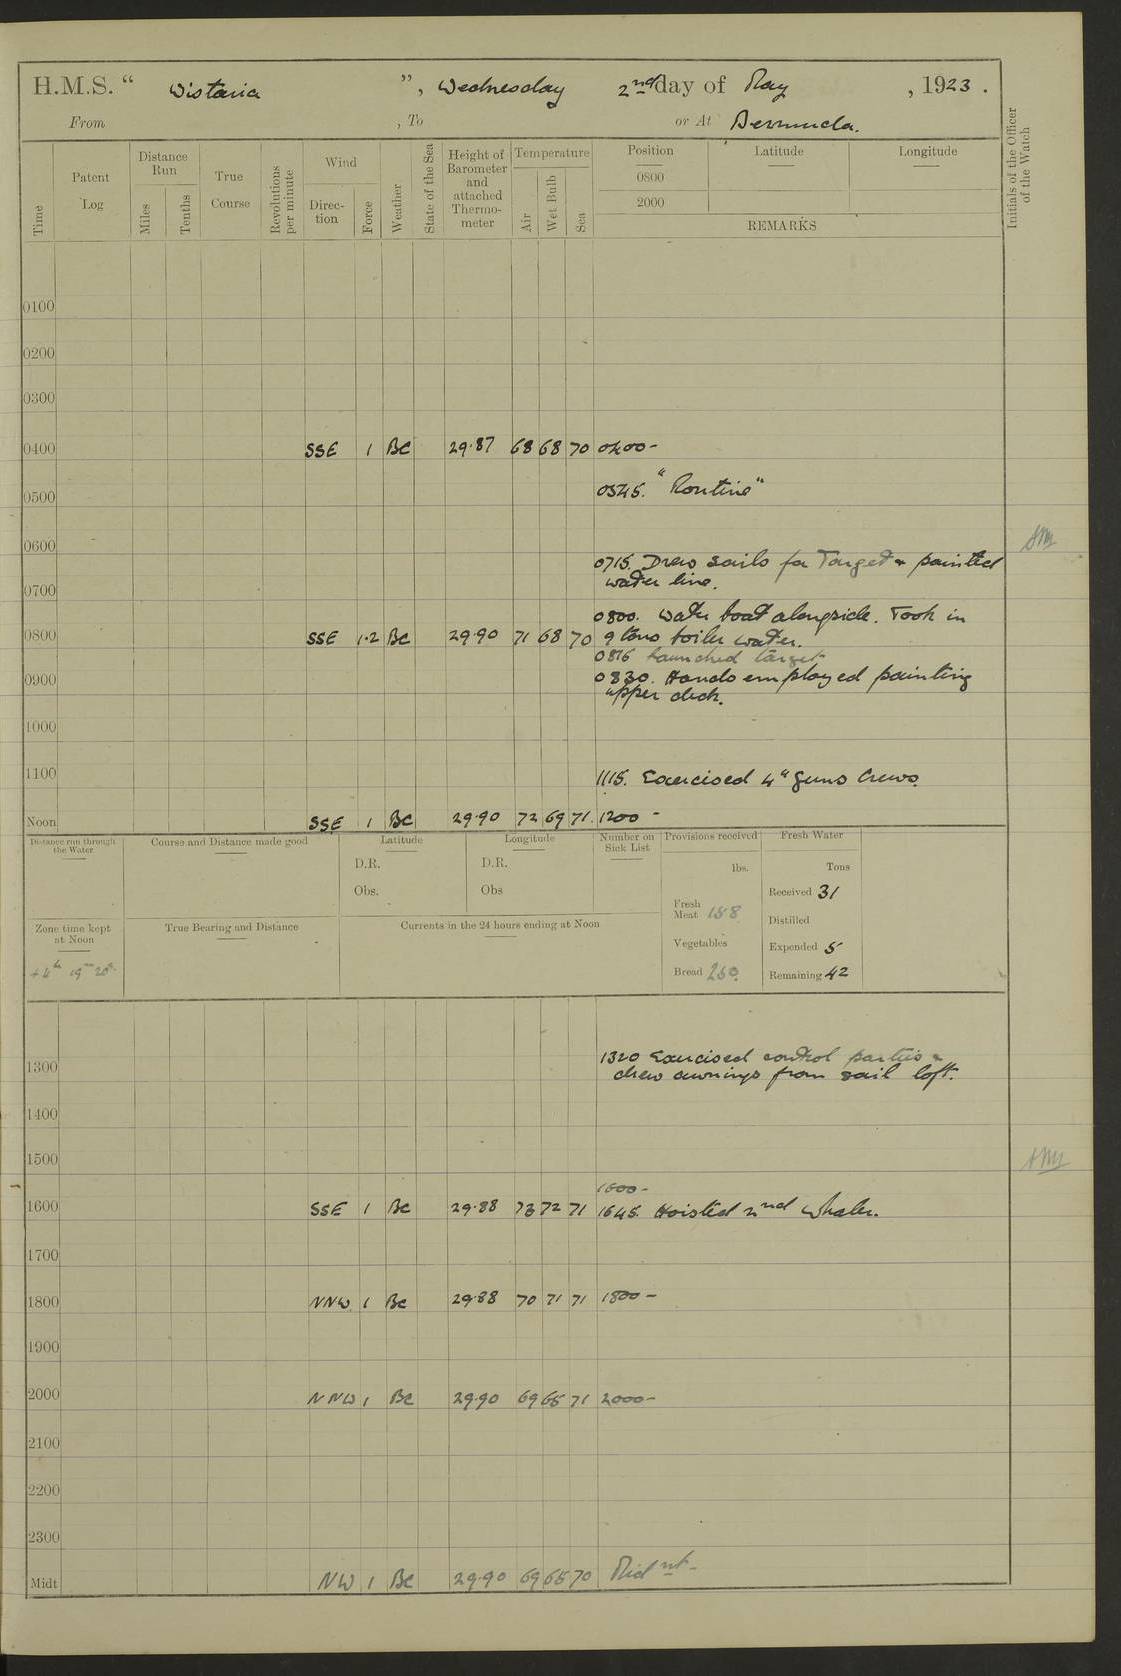 H.M.S. “ Wistaria ”, Wednesday 2nd day of May, 1923.
From , To or At Bermuda.
Time
Patent Log
Distance Run
Miles
Tenths
True Course
Revolutions per minute
Wind
Direction
Force
Weather
State of the Sea
Height of Barometer and attached Thermometer
Temperature
Air
Wet Bulb
Sea
Position
0800
2000
Latitude
Longitude
REMARKS
Initials of the Officer of the Watch
0100
0200
0300
0400 SSE 1 BC 29.87 68 68 70 0400-
0500 0545. "Routine"
0600
0715. Drew sails for Target & painted
water line.
0700
0800. Water boat alongside. Took in
0800 SSE 1.2 BC 29.90 71 68 70 9 tons boiler water.
0815 launched target
0900 0830. Hands employed painting
upper deck.
1000
1100 1115. Exercised 4" guns Crews.
Noon SSE 1 BC 29.90 72 69 71. 1200 -
Distance run through the Water
Course and Distance made good
Latitude
D.R.
Obs.
Longitude
D.R.
Obs
Number on Sick List
Provisions received
lbs.
Fresh Meat 188
Vegetables
Bread 260.
Fresh Water
Tons
Received 31
Distilled
Expended 5
Remaining 42
Zone time kept at Noon
+4h 19m 20s.
True Bearing and Distance
Currents in the 24 hours ending at Noon
1300 1320 Exercised control parties &
drew awnings from sail loft.
1400
1500
1600-
1600 SSE 1 BC 29.88 73 72 71 1645. Hoisted 2nd whaler.
1700
1800 NNW 1 BC 29.88 70 71 71 1800 -
1900
2000 NNW 1 BC 29.90 69 65 71 2000-
2100
2200
2300
Midt NW 1 BC 29.90 69 65 70 Midnt-